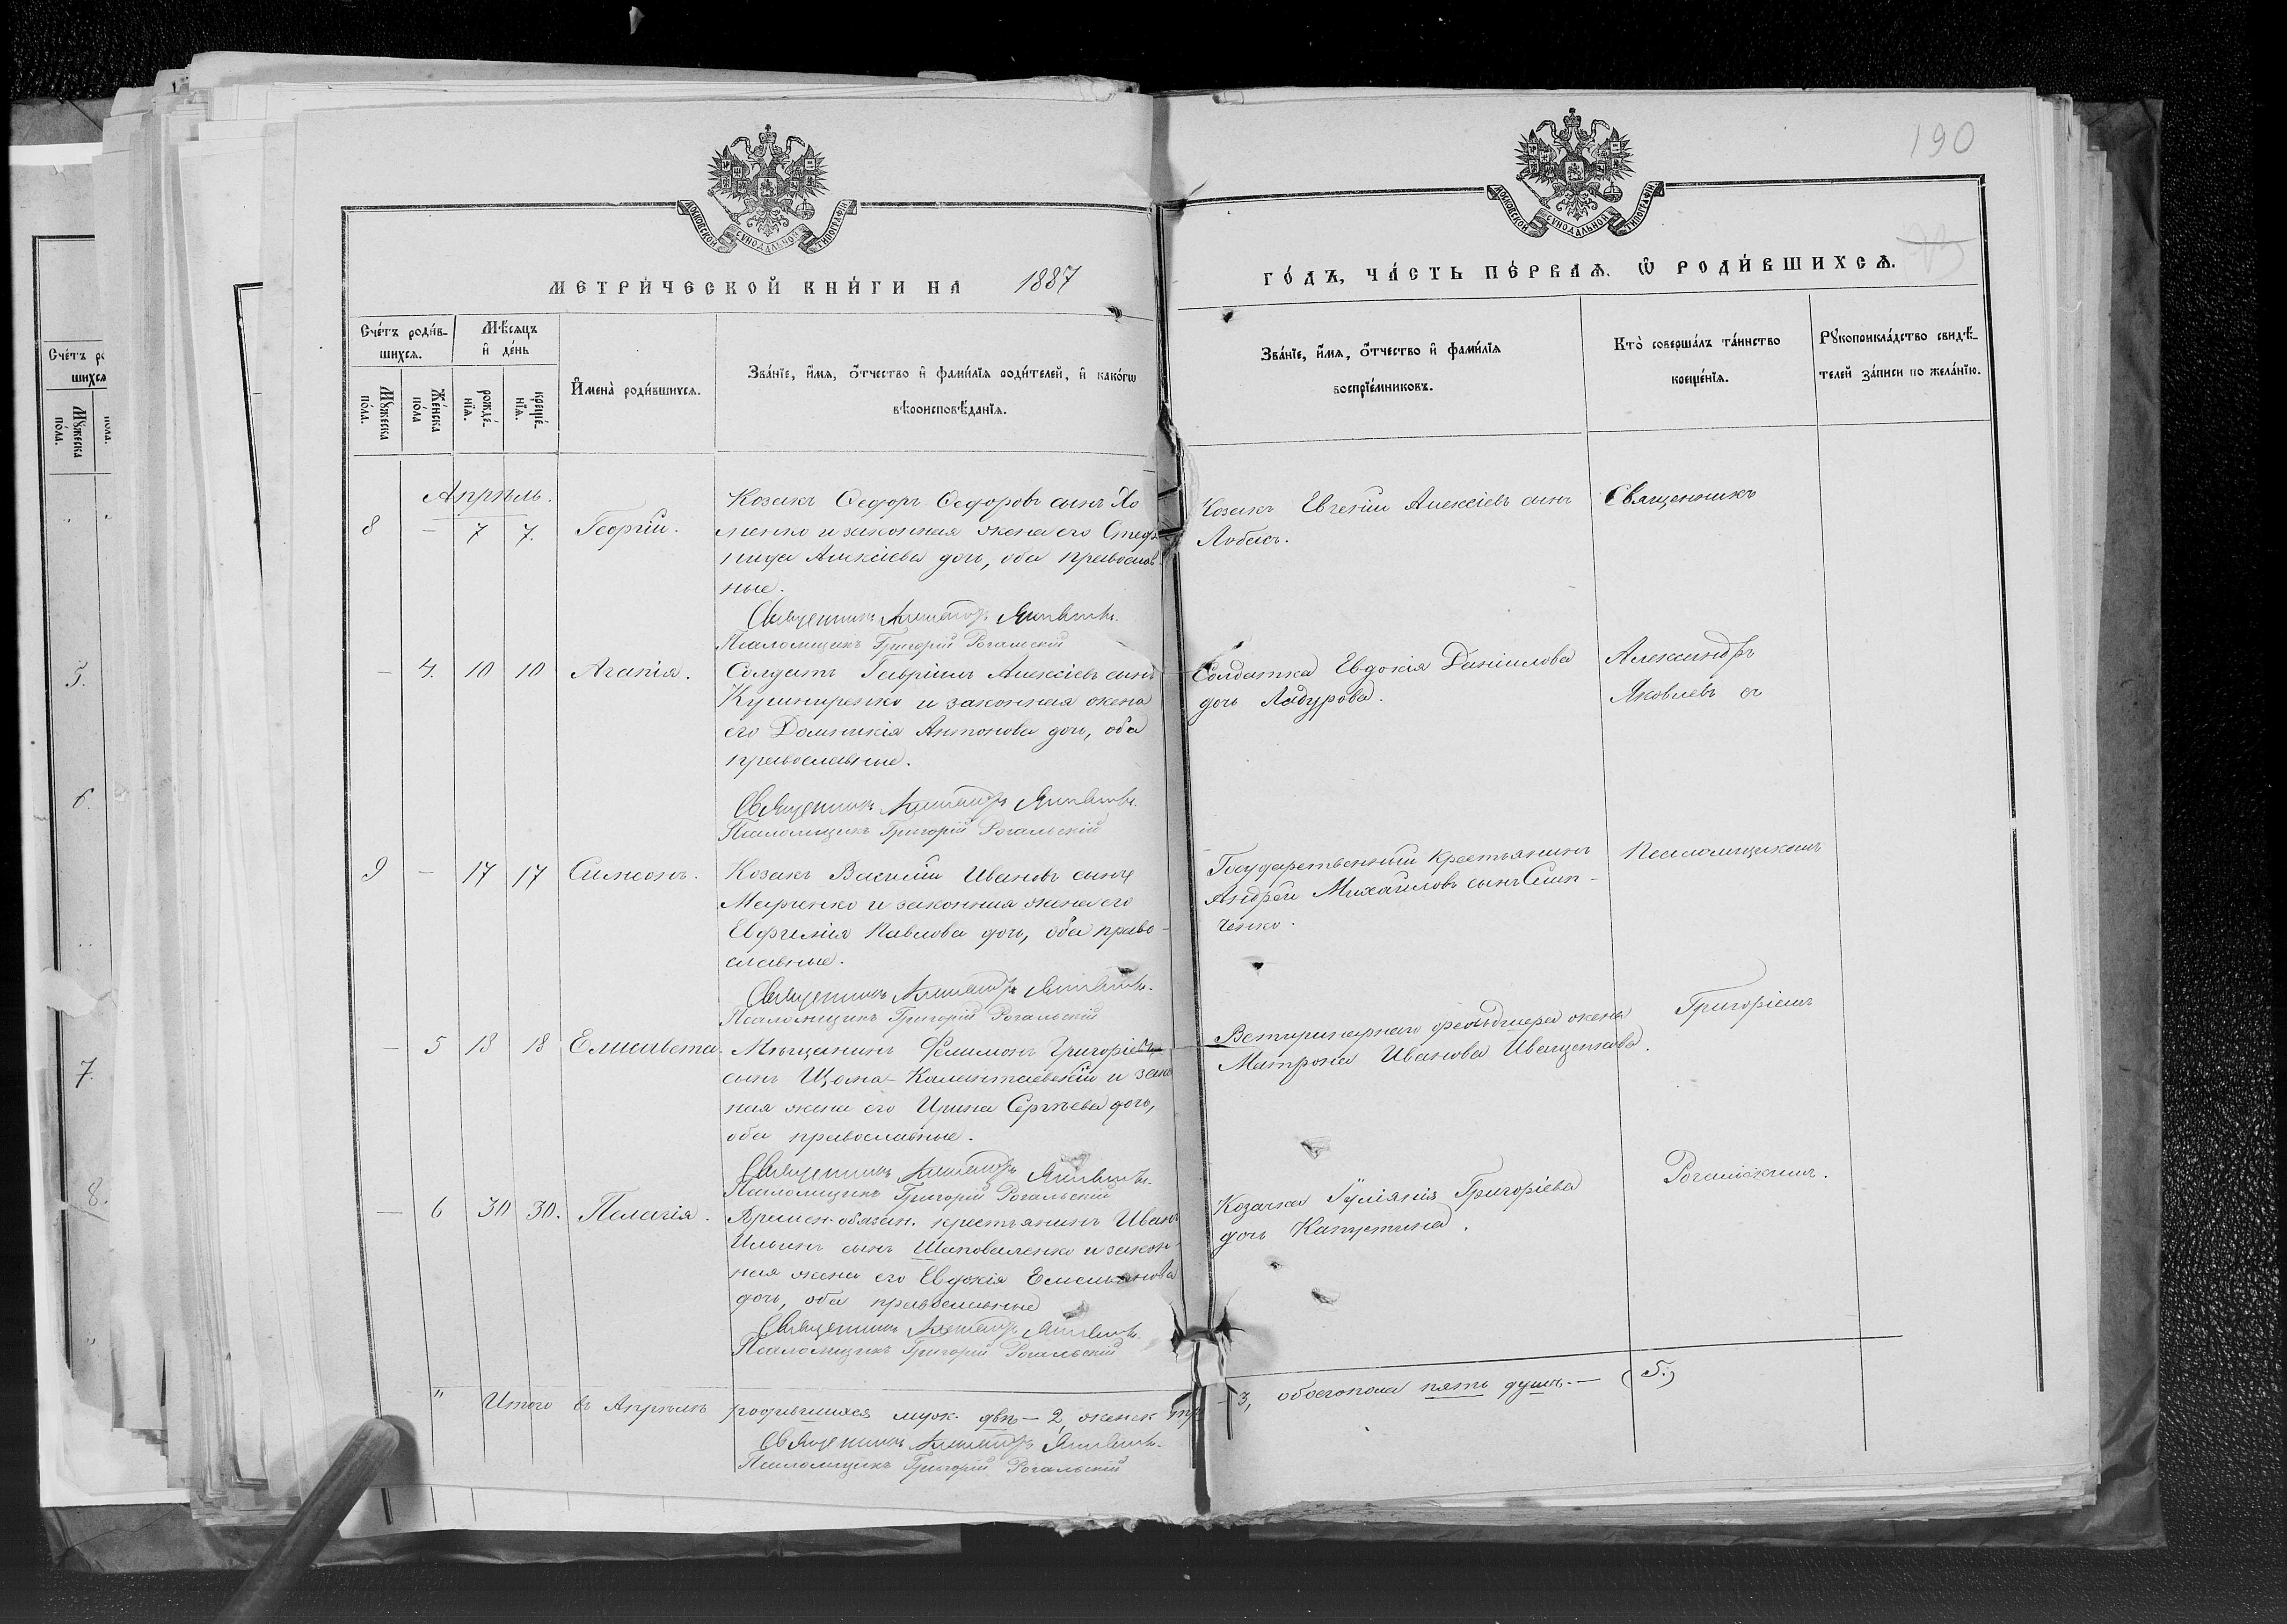 190
МОСКОВСКОЙ СѴНОДАЛЬНОЙ ТИПОГРАФІИ
МОСКОВСКОЙ СѴНОДАЛЬНОЙ ТИПОГРАФІИ
МЕТРИ́ЧЕСКОЙ КНИ́ГИ НА 1887
ГО́ДЪ, ЧА́СТЬ ПЕ́РВАѦ, Ѽ РОДИ́ВШИХСѦ.
Сче́тъ роди́в-
шихсѧ.
Мѣ́сѧцъ
и҆ де́нь
Мꙋ́жеска
по́ла.
Же́нска
по́ла
рожде́-
нїѧ.
креще́-
нїѧ.
И҆мена̀ роди́вшихсѧ.
Зва́нїе, и҆́мѧ, ѻ҆́тчество и҆ фами́лїѧ роди́телей, и҆ како́гѡ
вѣроисповѣ́данїѧ.
Зва́нїе, и҆́мѧ, ѻ҆́тчество и҆ фами́лїѧ
воспрїе́мниковъ.
Кто̀ соверша́лъ та́инство
креще́нїѧ.
Рꙋкоприкла́дство свидѣ́-
телей за́писи по жела́нїю.
Сче́тъ
шихсѧ
Мꙋ́жеска
по́ла.
пола.
5.
6.
7.
8.
Апрѣль.
8 – 7 7. Георгій.
Козакъ Ѳедоръ Ѳедоровъ сынъ Хо
менко и законная жена его Стеф
нида Алексіева дочь, оба православ
ные.
Священникъ Александръ Яковлевъ.
Псаломщикъ Григорій Рогальскій
Козакъ Евгеній Алексіевъ сынъ
Лобасъ.
Священникъ
– 4. 10 10 Агапія.
Солдатъ Гавріилъ Алексіевъ сынъ
Кушниренко и законная жена
его Домникія Антонова дочь, оба
православные.
Священникъ Александръ Яковлевъ.
Псаломщикъ Григорій Рогальскій
Солдатка Евдокія Даніилова
дочь Ладурова.
Александръ
Яковлевъ съ
9 – 17 17 Симеонъ.
Козакъ Василій Ивановъ сынъ
Марченко и законная жена его
Евфимія Павлова дочь, оба право-
славные.
Священникъ Александръ Яковлевъ.
Псаломщикъ Григорій Рогальскій
Государственный крестьянинъ
Андрей Михайловъ сынъ
ченко.
Псаломщикомъ
– 5 18 18 Елисавета.
Мѣщанинъ Филимонъ Григоріевъ
сынъ Калантаевскій и зако
ная жена его Ирина Сергѣева дочь,
оба православные.
Священникъ Александръ Яковлевъ.
Псаломщикъ Григорій Рогальскій
Ветеринарнаго фельдшера жена
Матрона Иванова Иващенкова.
Григоріемъ
– 6 30 30. Пелагія.
Времен-обязан. крестьянинъ Иванъ
Ильинъ сынъ Шаповаленко и закон
ная жена его Евдокія Емельянова
дочь, оба православные
Священникъ Александръ Яковлевъ.
Псаломщикъ Григорій Рогальскій
Козачка Іуліянія Григорьева
дочь Капустина.
Рогальскимъ.
" Итого въ Апрѣлѣ родившихся муж. двѣ – 2, женск тр – 3, обоегопола пять душъ. – (5.)
Священникъ Александръ Яковлевъ.
Псаломщикъ Григорій Рогальскій